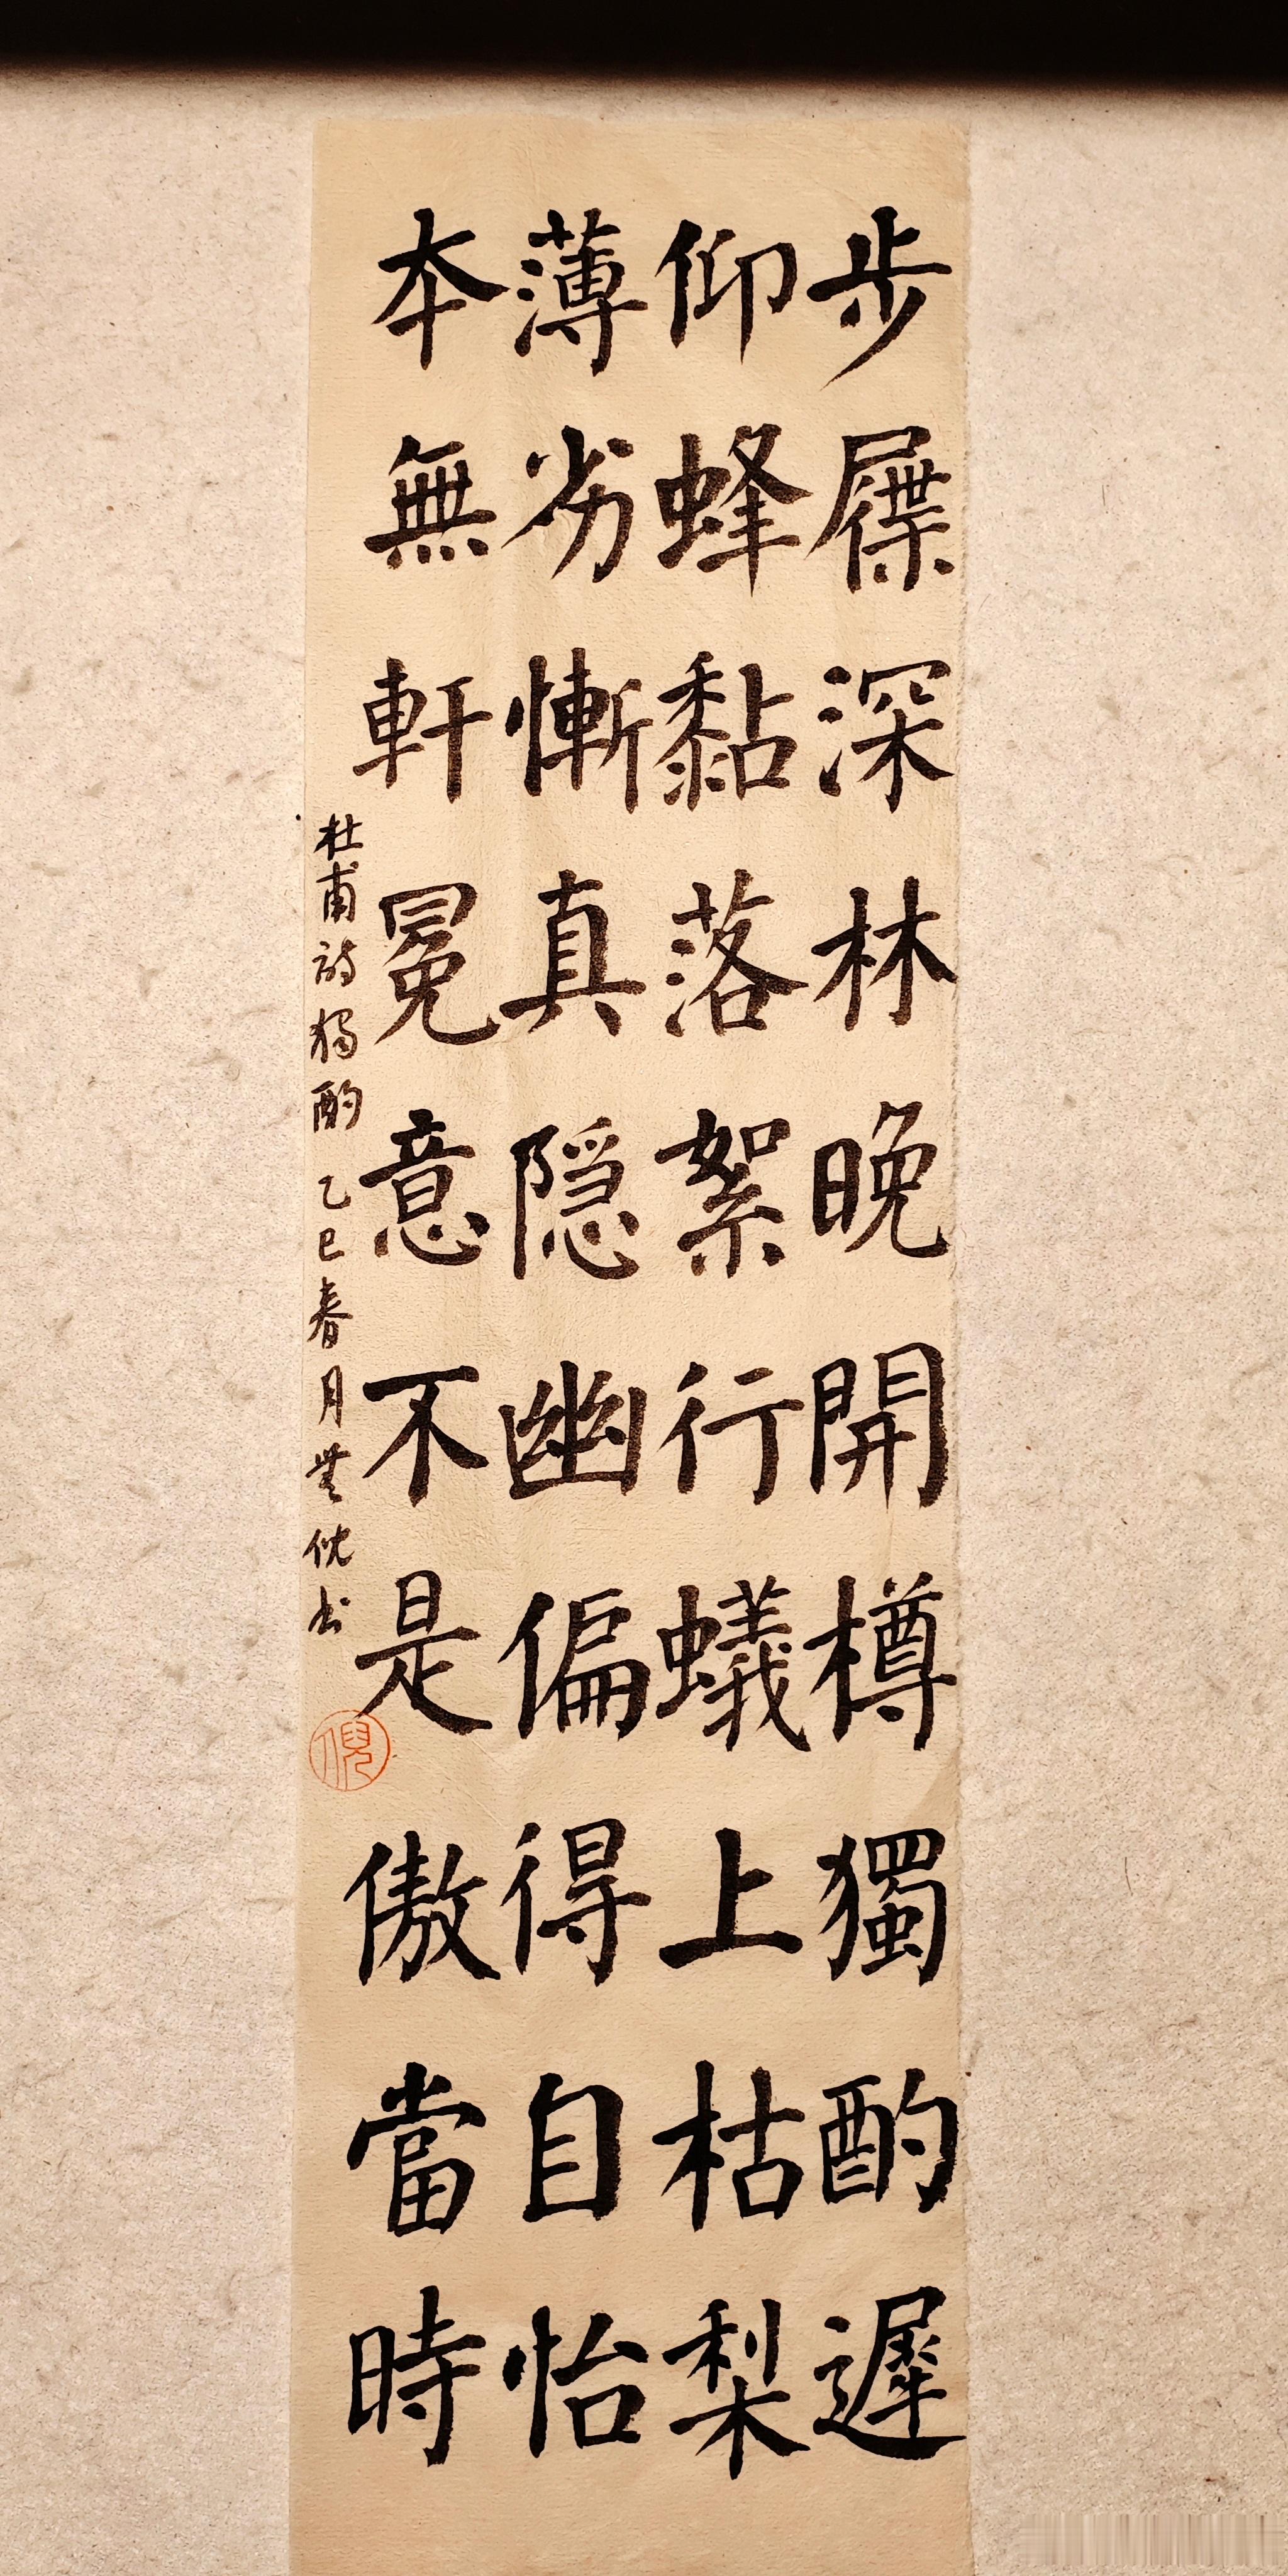 步屧深林晚開樽獨酌遲
仰蜂黏落絮行蟻上枯梨
薄劣慚真隱幽偏得自怡
本無軒冕意不是傲當時
杜甫詩獨酌 乙巳春月 書
倪